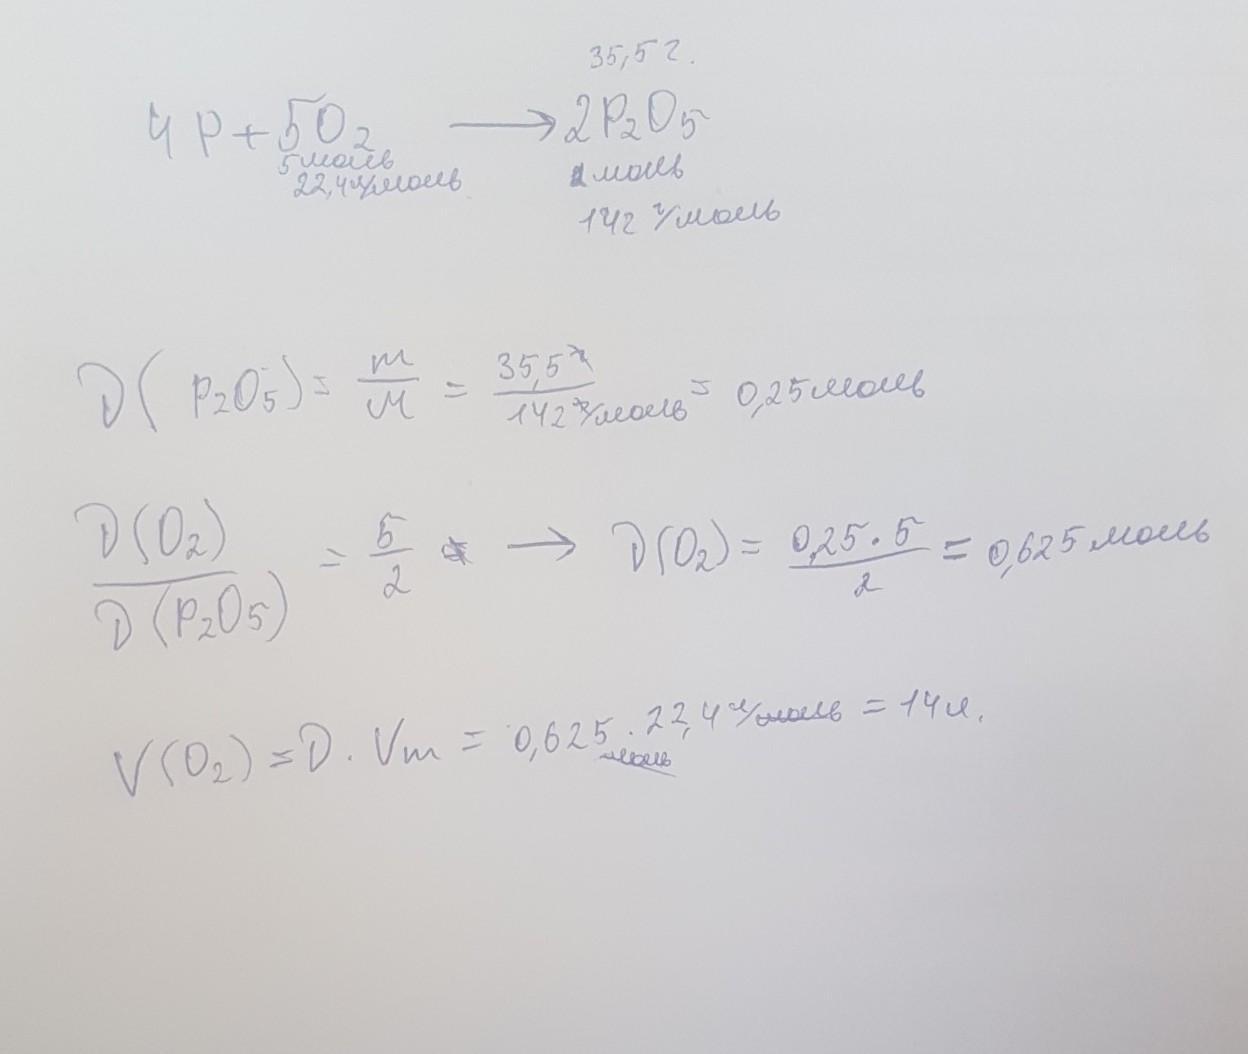 35,5 г.
4P + 5O₂ ⟶ 2P₂O₅
5 моль 2 моль
22,4 л/моль 142 г/моль
D( P₂O₅) = m/M = 35,5 г/142 г/моль = 0,25 моль
D(O₂)/D(P₂O₅) = 5/2 → D(O₂) = 0,25 · 5/2 = 0,625 моль
V(O₂) = D · Vm = 0,625 моль · 22,4 л/моль = 14 л.